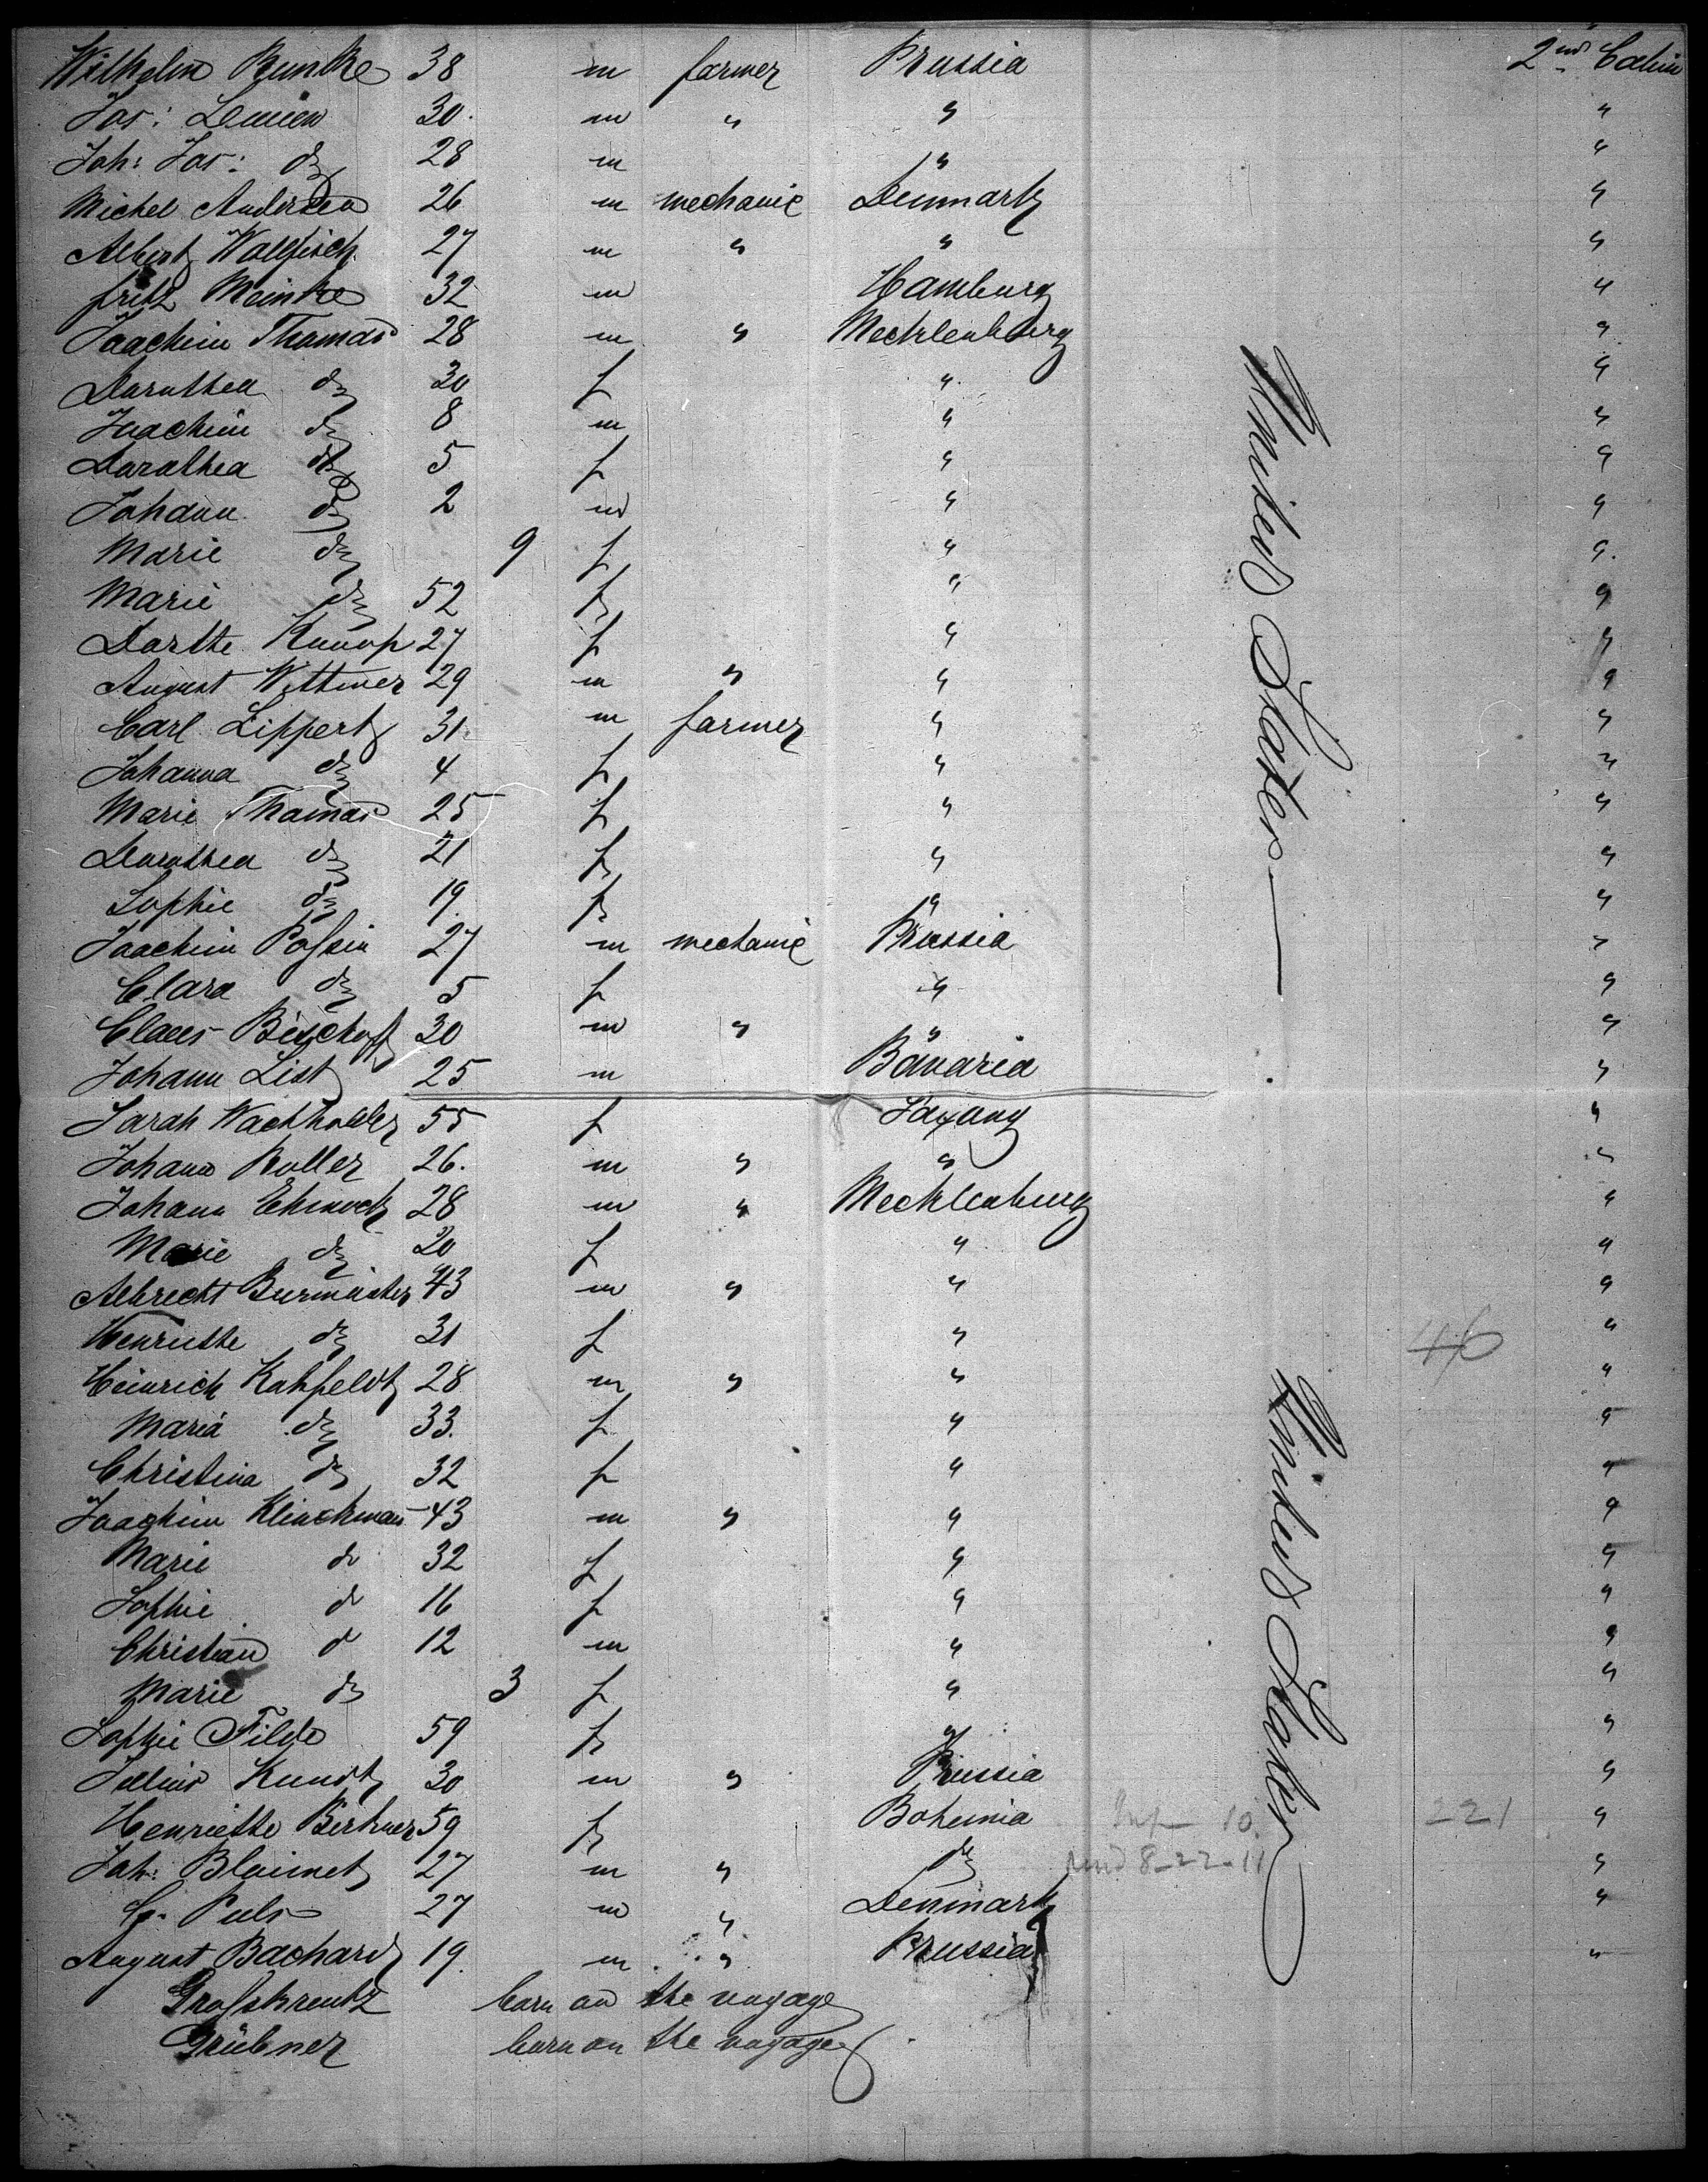 Wilhelm Runke 38 m farmer Prussia 2nd Cabin
Jos: 30 m " " "
Joh: Jos: do 28 m " "
Michel Andersen 26 m mechanic Denmark "
Albert Wallfisch 27 m " " "
Fritz Meinke 32 m Hamburg "
Joachim Thomas 28 m " Mecklenburg "
Dorothea do 30 f " "
Joachim do 8 m " "
Dorothea do 5 f " "
Johann do 2 m " "
Marie do 9 f " "
Marie do 52 f " "
Dorthe Knoop 27 f " "
August Wittmer 29 m " " "
Carl Lippert 31 m farmer " "
Johanna do 4 f " "
Marie Thomas 25 f " "
Dorothea do 21 f " "
Sophie do 19 f " "
Joachim Possin 27 m mechanic Prussia "
Clara do 5 f " "
Claus Bischoff 30 m " " "
Johann List 25 m Bavaria "
Sarah Wachholder 55 f Saxony "
Johann Roller 26. m " " "
Johann 28 m " Mecklenburg "
Marie do 20 f " "
Albrecht Burmeister 43 m " " "
Henriette do 31 f " "
46
Heinrich Kahfeldt 28 m " " "
Maria do 33. f " "
Christina do 32 f " "
Joachim Klinckman 43 m " " "
Marie do 32 f " "
Sophie do 16 f " "
Christian do 12 m " "
Marie do 3 f " "
Sophie Tilse 59 f " "
Julius Kundt 30 m " Prussia "
Henriette Birkner 59 f Bohemia 10. 221 "
Joh: 27 m " do 8-22-11 "
C. Puls 27 m " Denmark "
August Bachard 19. m " Prussia "
Grosskreutz born on the voyage
Grübner born on the voyage
United States
United States